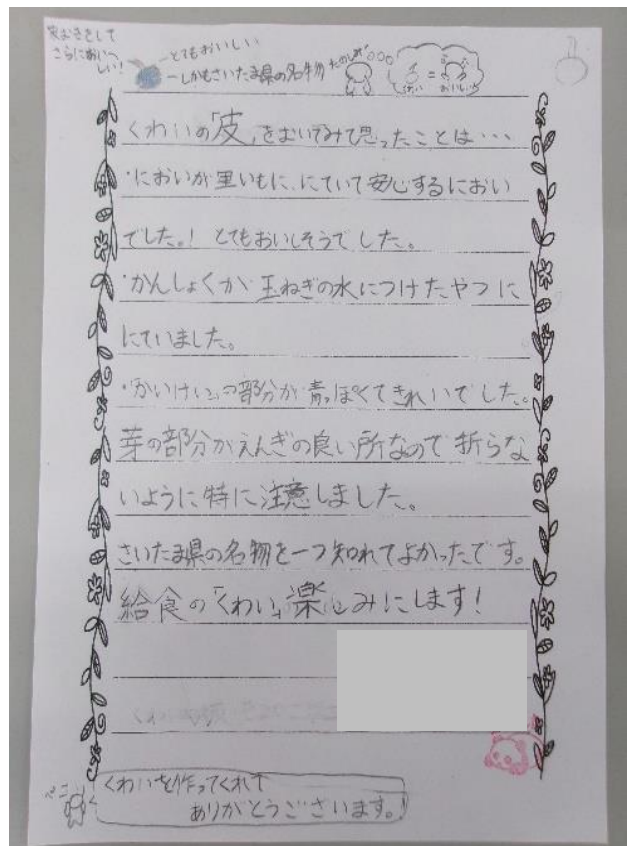 さらにおいしい!
とてもおいしい
しかもさいたま県の名物
たのしみ
くわいの「皮」をむいてみて思ったことは…
・においが里いもに、にていて安心するにおい
でした。! とてもおいしそうでした。
・かんしょくが玉ねぎの水につけたやつに
にていました。
・「かいけい」の部分が青っぽくてきれいでした。
芽の部分がえんぎの良い所なので折らな
いように特に注意しました。
さいたま県の名物を一つ知れてよかったです。
給食の「くわい」楽しみにします!
ペこ
くわいを作ってくれて
ありがとうございます。!